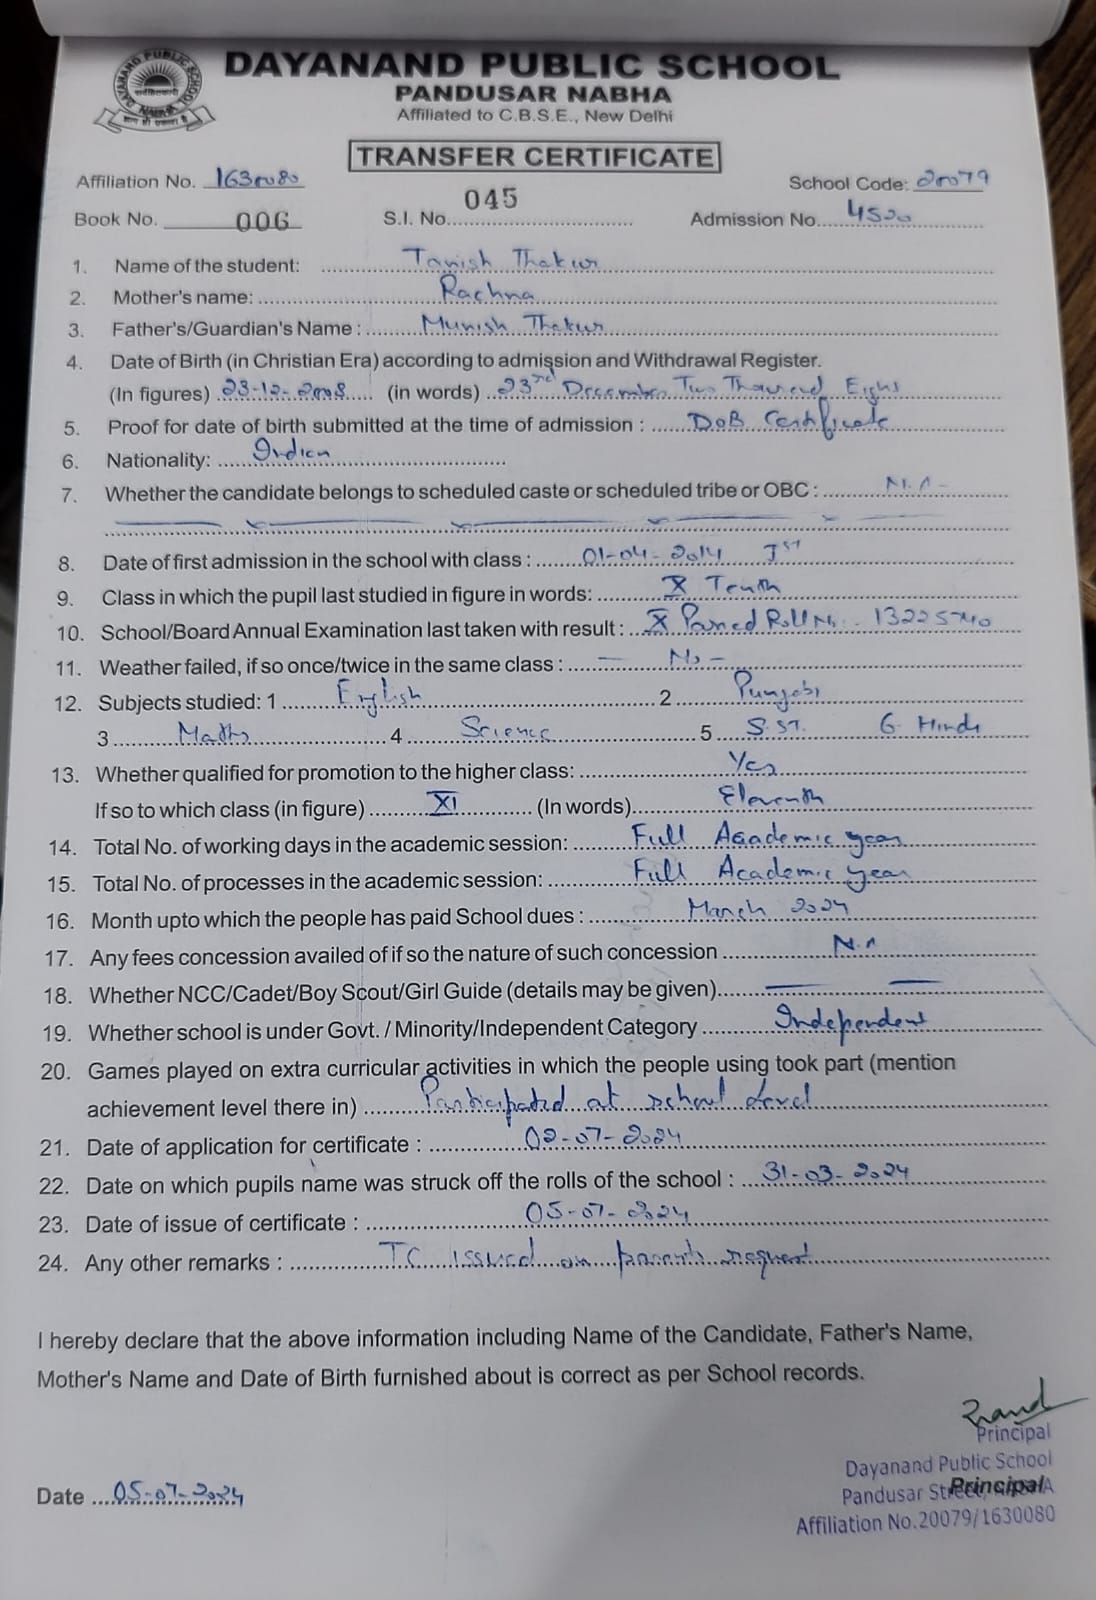 DAYANAND PUBLIC SCHOOL
PANDUSAR NABHA
Affiliated to C.B.S.E., New Delhi
TRANSFER CERTIFICATE
Affiliation No. 1630080 School Code: 20079
Book No. 006 S.I. No. 045 Admission No. 4500
1. Name of the student: Tanish Thakur
2. Mother's name: Rachna
3. Father's/Guardian's Name : Munish Thakur
4. Date of Birth (in Christian Era) according to admission and Withdrawal Register.
(In figures) 23-12-2008 (in words) 23rd December Two Thousand Eight
5. Proof for date of birth submitted at the time of admission : DoB Certificate
6. Nationality: Indian
7. Whether the candidate belongs to scheduled caste or scheduled tribe or OBC : N.A-
8. Date of first admission in the school with class : 01-04-2014 Ist
9. Class in which the pupil last studied in figure in words: X Tenth
10. School/Board Annual Examination last taken with result : X Passed Roll No. 13225740
11. Weather failed, if so once/twice in the same class : — No -
12. Subjects studied: 1 English 2 Punjabi
3 Maths 4 Science 5 S.ST. 6 Hindi
13. Whether qualified for promotion to the higher class: Yes
If so to which class (in figure) XI (In words) Eleventh
14. Total No. of working days in the academic session: Full Academic year
15. Total No. of processes in the academic session: Full Academic year
16. Month upto which the people has paid School dues : March 2024
17. Any fees concession availed of if so the nature of such concession N.A
18. Whether NCC/Cadet/Boy Scout/Girl Guide (details may be given) — —
19. Whether school is under Govt. / Minority/Independent Category Independent
20. Games played on extra curricular activities in which the people using took part (mention
achievement level there in) Participated at school Level
21. Date of application for certificate : 02-07-2024
22. Date on which pupils name was struck off the rolls of the school : 31-03-2024
23. Date of issue of certificate : 05-07-2024
24. Any other remarks : TC issued on parents request
I hereby declare that the above information including Name of the Candidate, Father's Name,
Mother's Name and Date of Birth furnished about is correct as per School records.
Principal
Dayanand Public School
Date 05-07-2024 Pandusar Principal
Affiliation No.20079/1630080